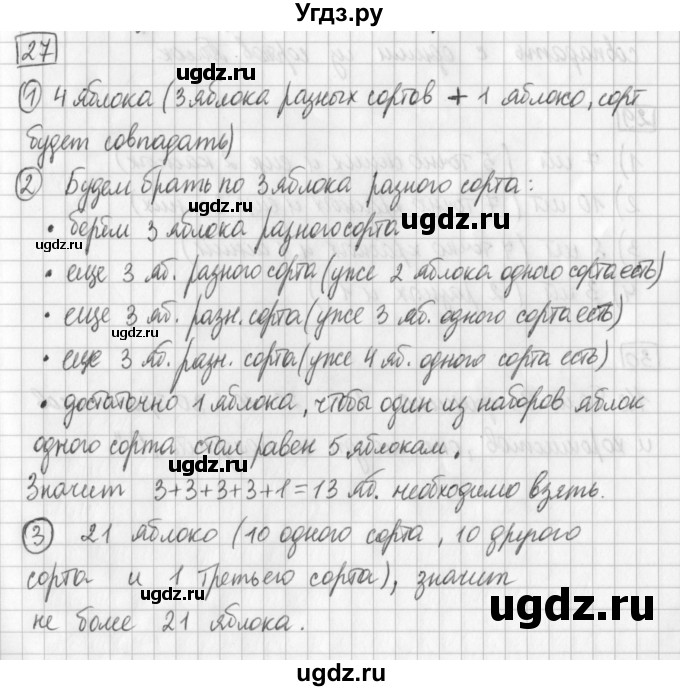 Угдз.ру
27
① 4 яблока (3 яблока разных сортов + 1 яблоко, сорт
будет совпадать)
② Будем брать по 3 яблока разного сорта:
• берём 3 яблока разного сорта
• еще 3 яб. разного сорта (уже 2 яблока одного сорта есть)
• еще 3 яб. разн. сорта (уже 3 яб. одного сорта есть)
• еще 3 яб. разн. сорта (уже 4 яб. одного сорта есть)
• достаточно 1 яблока, чтобы один из наборов яблок
одного сорта стал равен 5 яблокам.
Значит 3+3+3+3+1=13 яб. необходимо взять.
③ 21 яблоко (10 одного сорта, 10 другого
сорта и 1 третьего сорта), значит
не более 21 яблока.
ugdz.ru
ugdz.ru
ugdz.ru
ugdz.ru
ugdz.ru
ugdz.ru
ugdz.ru
ugdz.ru
ugdz.ru
ugdz.ru
ugdz.ru